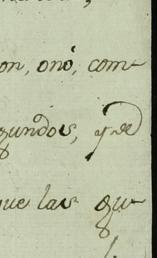 on, onó, com-
gundos, y de
que las gu-